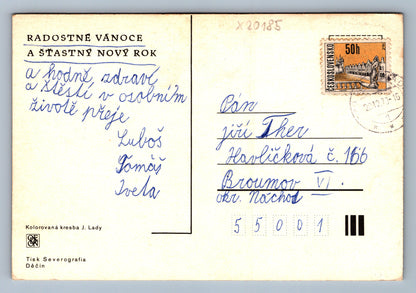 X 20185
RADOSTNÉ VÁNOCE
A ŠŤASTNÝ NOVÝ ROK
a hodně zdraví
a štěstí v osobním
životě přeje
Luboš
Tomáš
Iveta
Kolorovaná kresba J. Lady
Tisk Severografia
Děčín
50h
ČESKOSLOVENSKO
Pán
jiří Ther
Havlíčková č. 166
Broumov VI.
okr. Náchod
55001